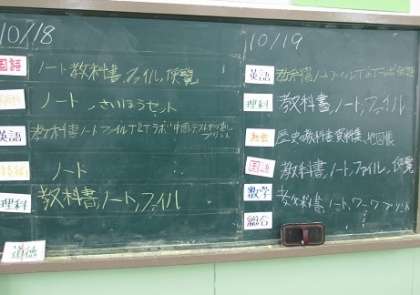 10/18
国語 ノート教科書,ファイル,便覧
ノート,さいほうセット
英語 教科書ノートファイル
ノート
理科 教科書,ノート,ファイル
道徳
10/19
英語 教科書,ノートファイル
理科 教科書,ノート,ファイル
社会 歴史教科書資料集,地図帳
国語 教科書,ノート,ファイル,便覧
数学 教科書,ノート,ワークプリント
総合